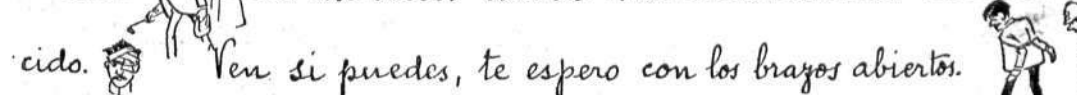 cido. Ven si puedes, te espero con los brazos abiertos.